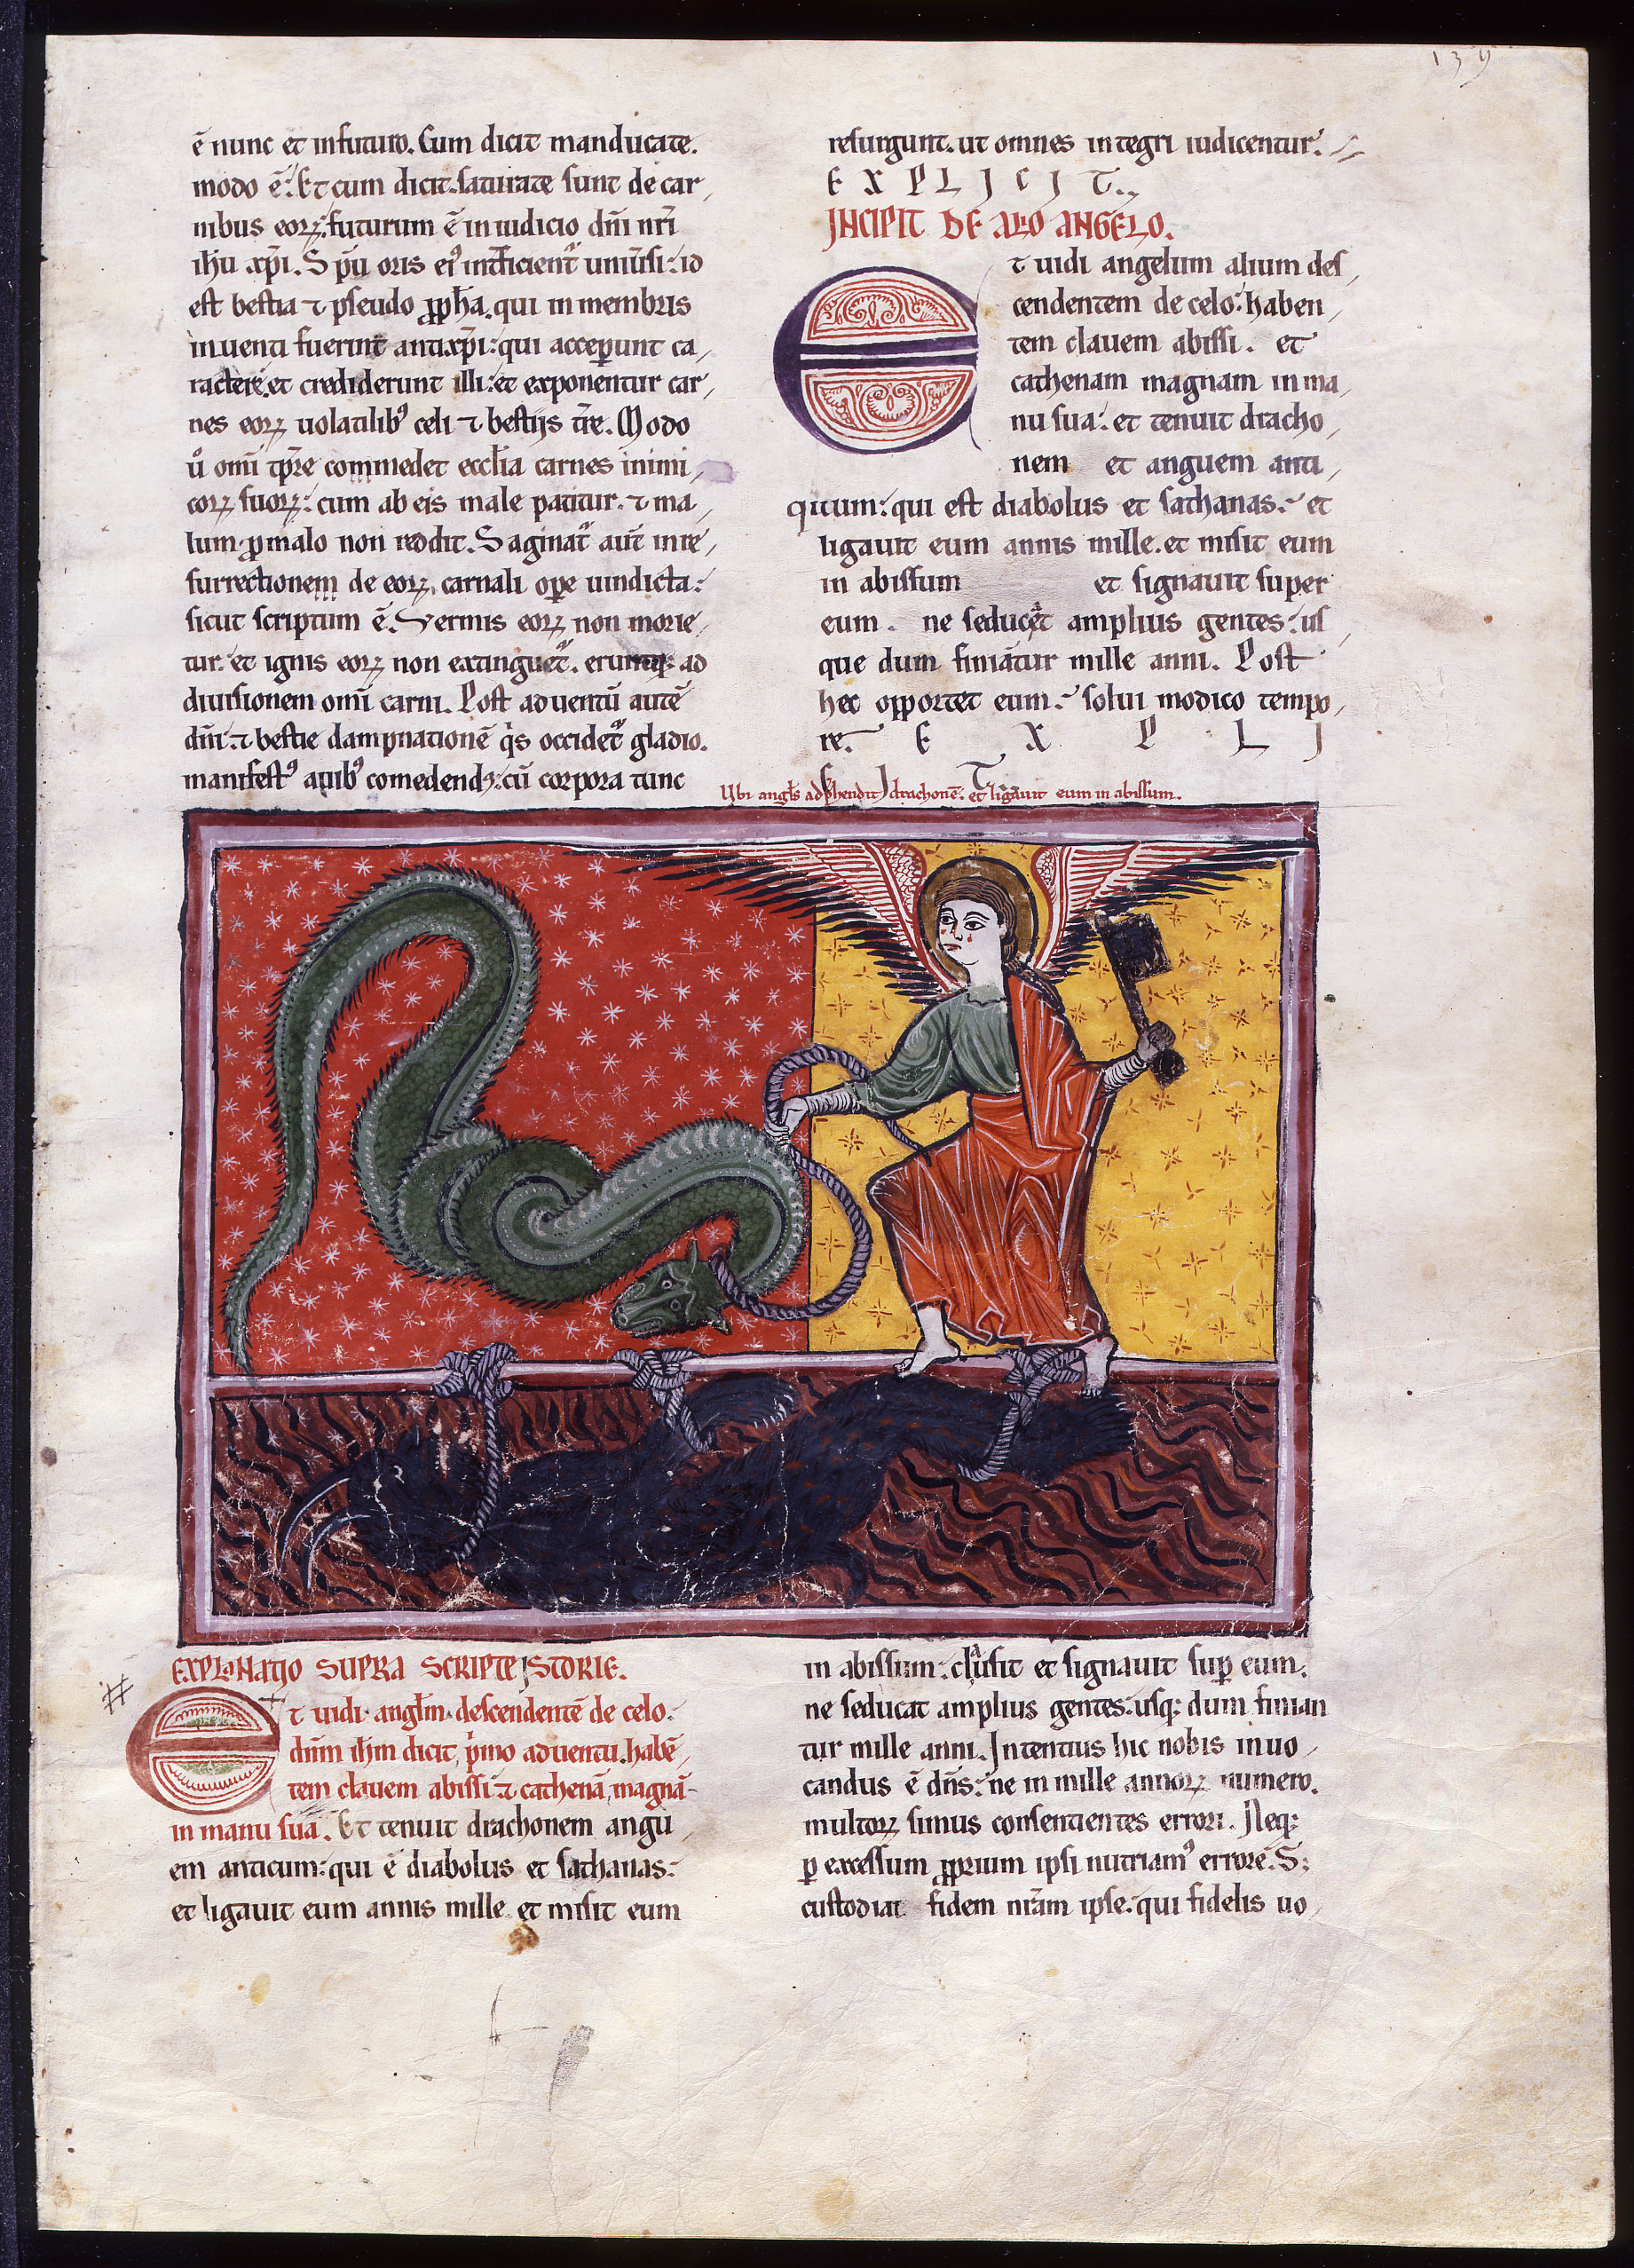 139
ē nunc et infuturo. Cum dicit manducate.
modo ē. Et cum dicit. saturate sunt de car
nibus eorꝝ. futurum ē in iudicio dn̄i nr̄i
ih̄u xp̄i. Sp̄u oris eiꝰ int̄ficient᷑ uniūsi. id
est bestia ⁊ pseudo ꝓph̄a. qui in membris
inuenti fuerint antixp̄i. qui acceperunt ca
ractere. et crediderunt illi. et exponentur car
nes eorꝝ uolatilibꝰ celi ⁊ bestijs t̄re. Modo
ů om̄i tp̄re commedet eccl̄ia carnes inimi
corꝝ suorꝝ. cum ab eis male patitur. ⁊ ma
lum ꝓ malo non reddit. Saginat᷑ aut̄ in re
surrectionem de eorꝝ carnali oꝑe uindicta.
sicut scriptum ē. Vermis eorꝝ non morie
tur. et ignis eorꝝ non extinguet᷑. eruntqꝫ ad
diuisionem om̄i carni. Post aduentū autē
dn̄i. ⁊ bestie dampnationē q̄s occidet᷑ gladio.
manifestꝰ auibꝰ comedendꝫ. cū corpora tunc
resurgunt. ut omnes integri iudicentur.
EXPLICIT.
INCIPIT DE ALIO ANGELO.
Et uidi angelum alium des
cendentem de celo. haben
tem clauem abissi. et
cathenam magnam in ma
nu sua. et tenuit dracho
nem et anguem anti
quum. qui est diabolus et sathanas. et
ligauit eum annis mille. et misit eum
in abissum et signauit super
eum. ne seducat amplius gentes. us
que dum finiatur mille anni. Post
hec opportet eum. solui modico tempo
re. E X P L I
C I T
Ubi angl̄s adp̄hendit drachonē. et ligauit eum in abissum.
EXPLANATIO SUPRA SCRIPTE ISTORIE.
Et uidi angl̄m descendentē de celo.
dn̄m ih̄m dicit, p̄mo aduentu. habē
tem clauem abissi ⁊ cathenā magnā
in manu sua. Et tenuit drachonem angu
em anticum. qui ē diabolus et sathanas.
et ligauit eum annis mille et misit eum
in abissum. clausit et signauit suꝑ eum.
ne seducat amplius gentes. usqꝫ dum finian
tur mille anni. Intentius hic nobis inuo
candus ē dn̄s. ne in mille annorꝝ numero.
multorꝝ simus consentientes errori. Neqꝫ
ꝑ excessum ꝓprium ipsi nutriamꝰ errorē. Sꝫ
custodiat fidem nr̄am ipse. qui fidelis uo